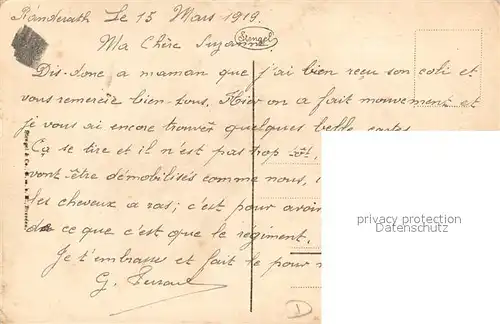 Randerath Le 15 Mars 1919.
Ma Chère Suzanne
Stengel
Dis-donc a maman que j'ai bien reçu son coli et
vous remercie bien tous. Hier on a fait mouvement et
je vous ai encore trouver quelques belle cartes
Ça se tire et il n'est pas trop tôt,
vont être démobilisés comme nous,
les cheveux a ras; c'est pour avoir
de ce que c'est que le régiment.
Je t'embrasse et fait le pour
G.
privacy protection
Datenschutz